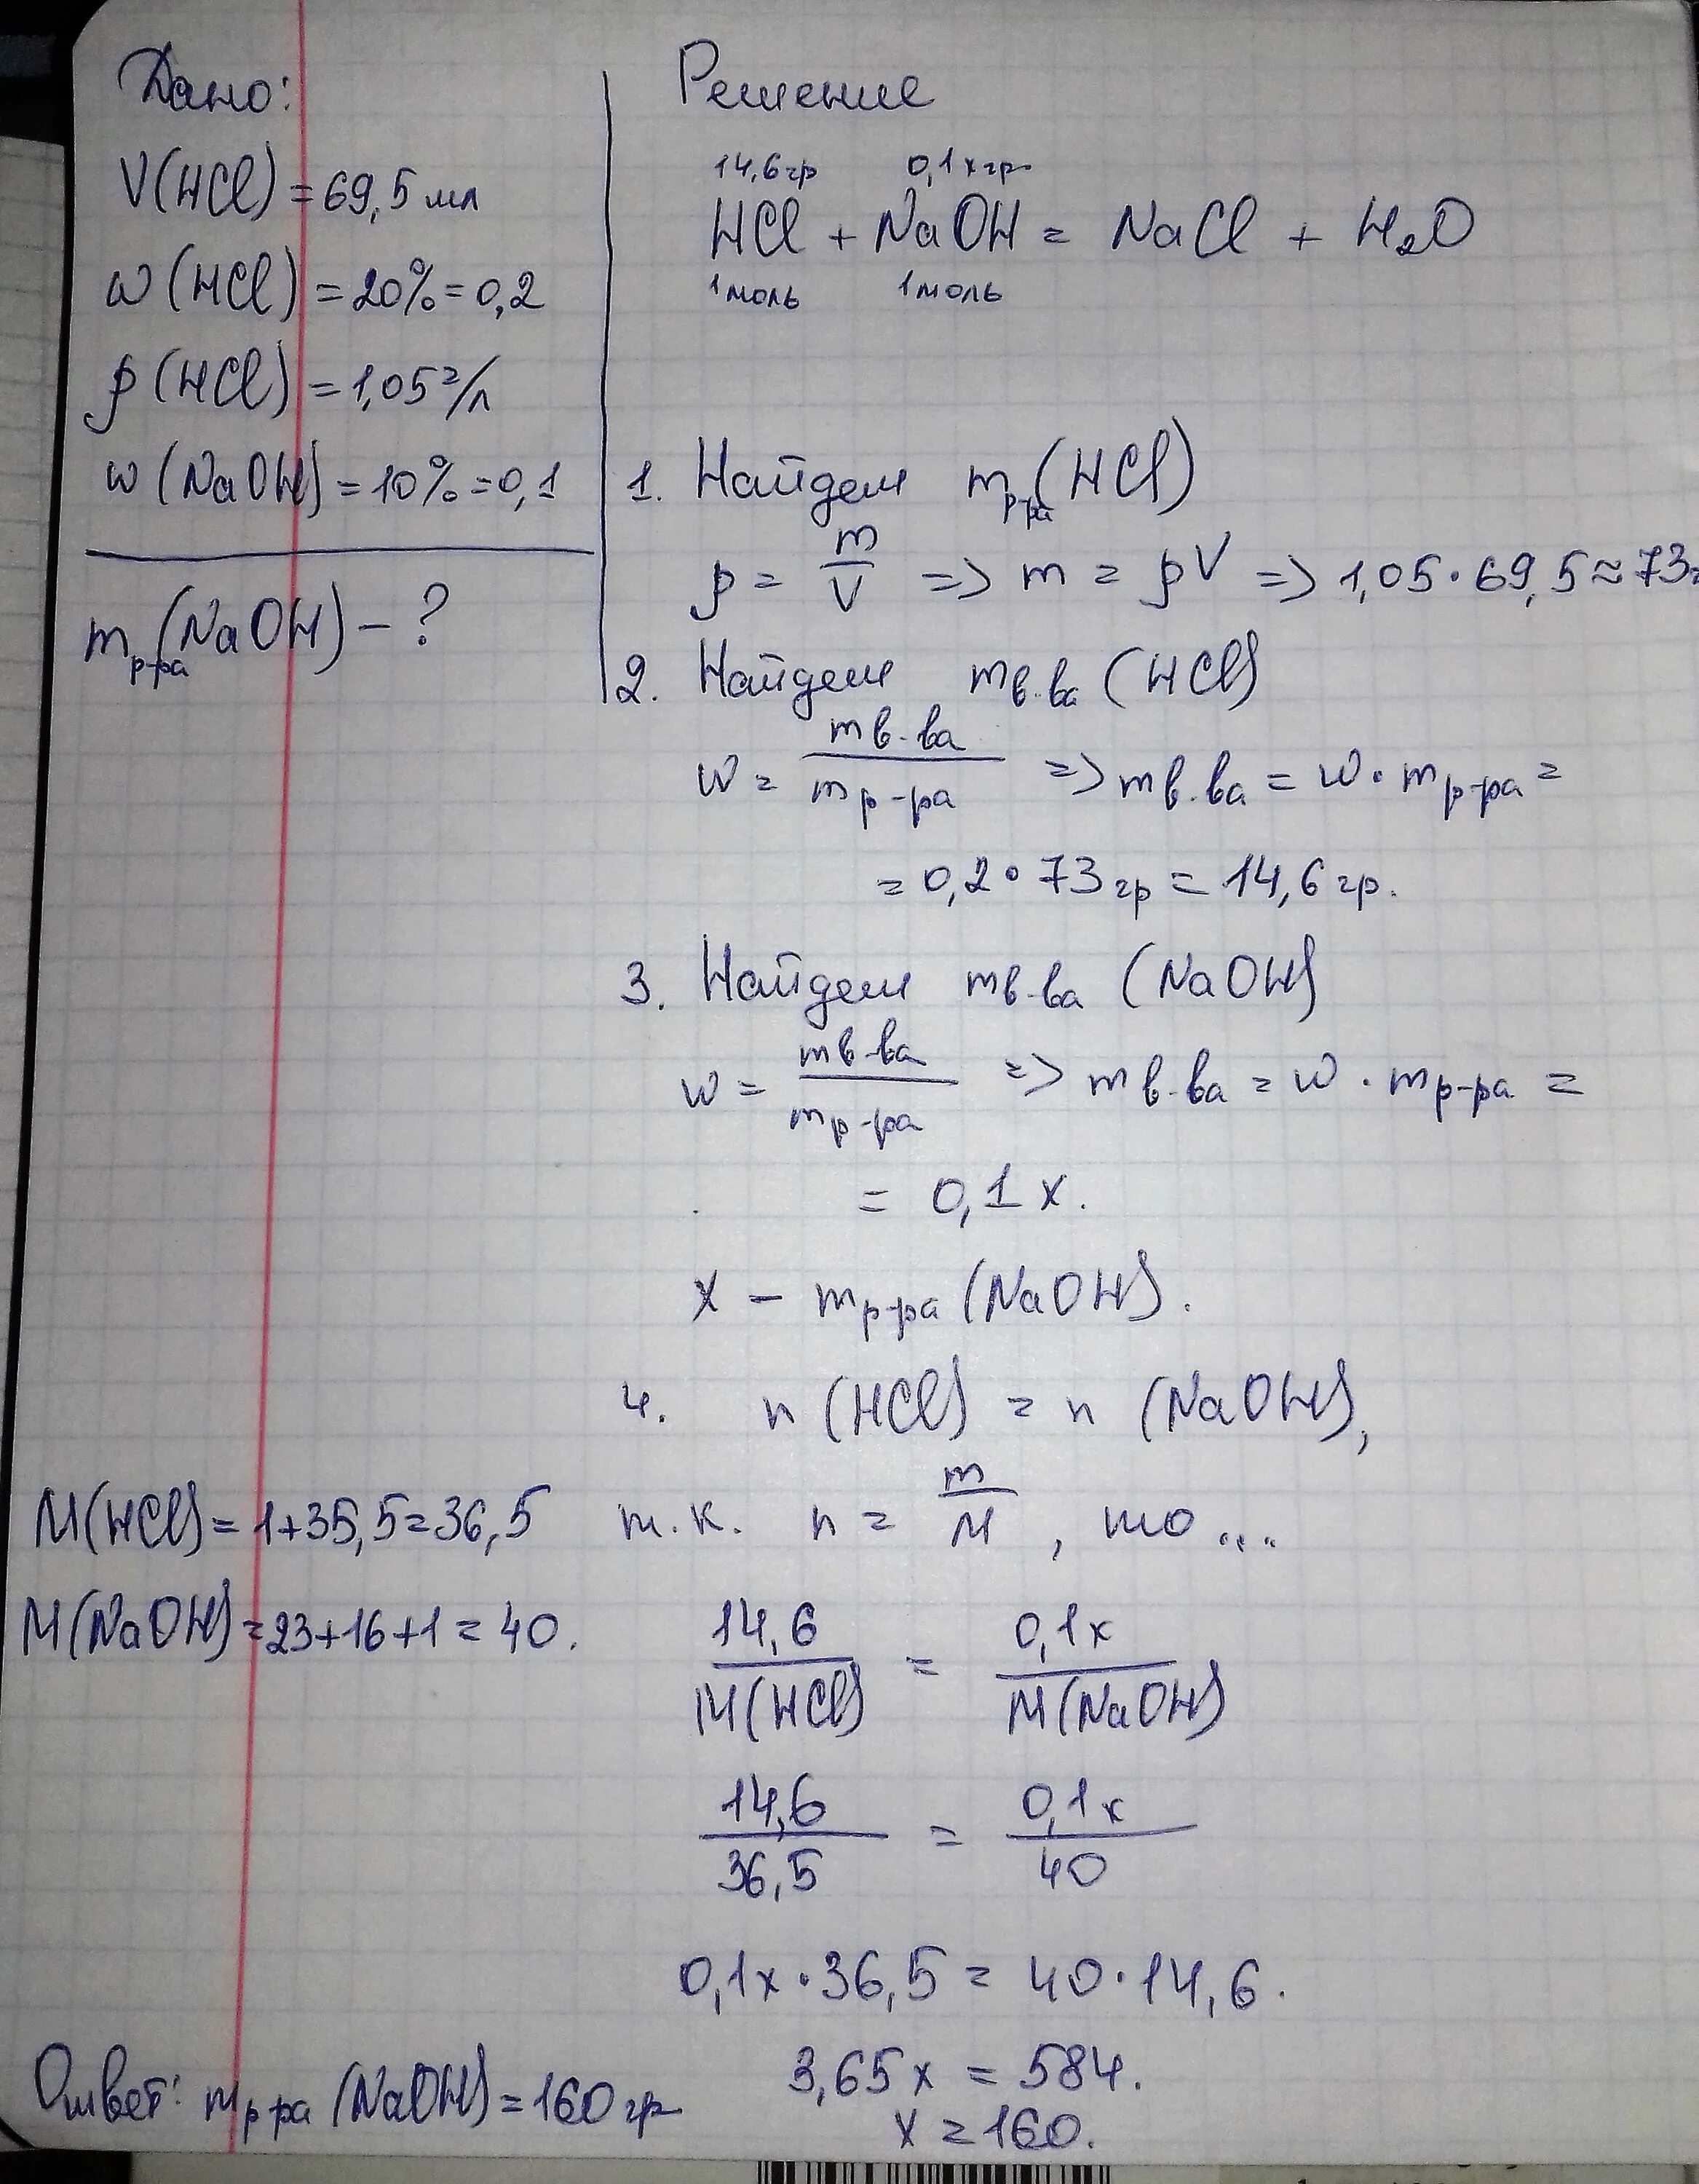 Дано:
V(HCl) = 69,5 мл
w (HCl) = 20% = 0,2
ρ (HCl) = 1,05 г/л
w (NaOH) = 10% = 0,1
m р-ра (NaOH) - ?
Решение
14,6 гр 0,1 x гр
HCl + NaOH = NaCl + H₂O
1 моль 1 моль
1. Найдем m р-ра (HCl)
ρ = m/V => m = ρV => 1,05 · 69,5 ≈ 73г
2. Найдем m в-ва (HCl)
w = m в-ва / m р-ра => m в-ва = w · m р-ра =
= 0,2 · 73 гр = 14,6 гр.
3. Найдем m в-ва (NaOH)
w = m в-ва / m р-ра => m в-ва = w · m р-ра =
= 0,1 x.
x - m р-ра (NaOH).
4. n (HCl) = n (NaOH),
т.к. n = m/M, то ...
M(HCl) = 1+35,5 = 36,5
M(NaOH) = 23+16+1 = 40.
14,6 / M(HCl) = 0,1x / M(NaOH)
14,6 / 36,5 = 0,1x / 40
0,1x · 36,5 = 40 · 14,6.
3,65 x = 584.
x = 160.
Ответ: m р-ра (NaOH) = 160 гр